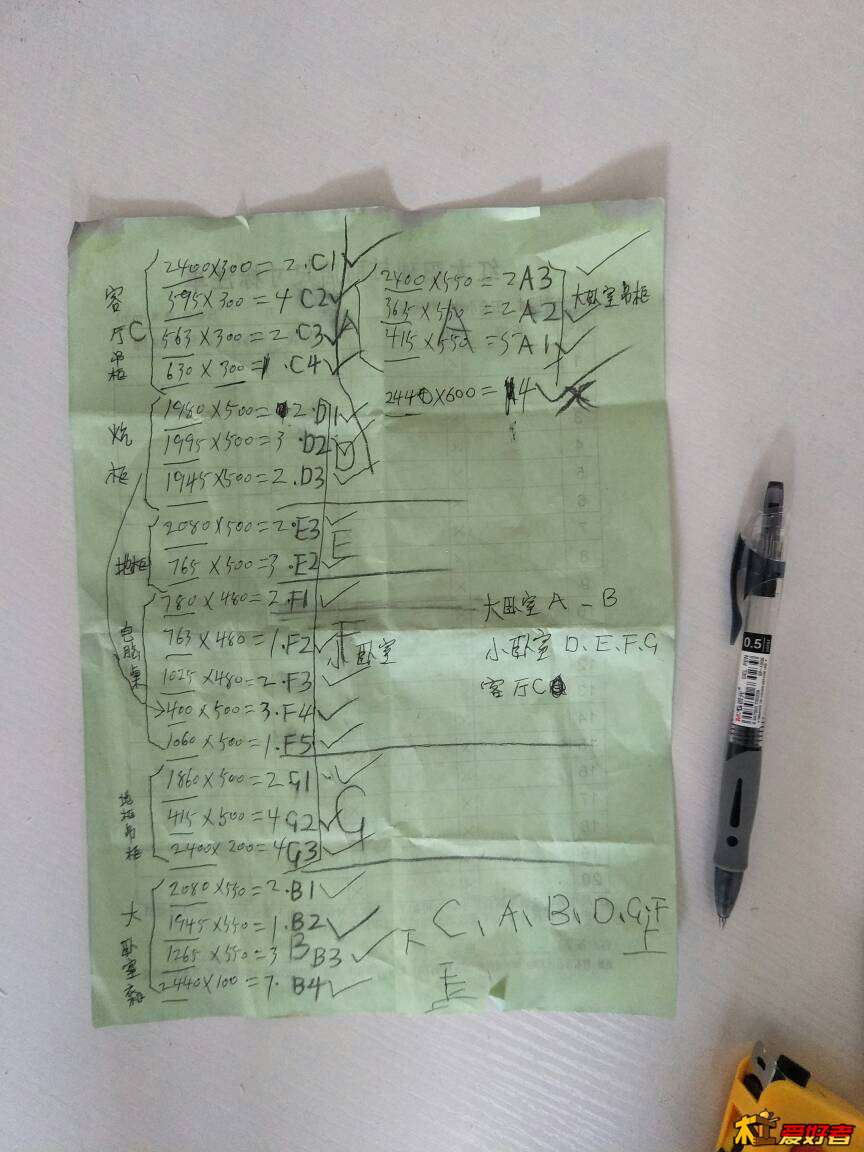 客厅C吊柜
2400×300=2.C1
595×300=4 C2
563×300=2.C3
630×300=1.C4
A
炕柜
1980×500=2.D1
1995×500=3.D2
1945×500=2.D3
D
地柜
2080×500=2.E3
765×500=3.E2
E
电脑桌
780×480=2.F1
763×480=1.F2
1025×480=2.F3
400×500=3.F4
1060×500=1.F5
小卧室
1860×500=2 G1
415×500=4 G2
2400×200=4 G3
G
大卧室
2080×550=2.B1
1945×550=1.B2
1265×550=3 B3
2440×100=7.B4
B
2400×550=2 A3
365×550=2 A2
415×550=5 A1
A
大卧室吊柜
2440×600=14
大卧室 A-B
小卧室 D、E、F、G
客厅C
下 C、A、B、D、G、F
上
E
0.5
木工爱好者